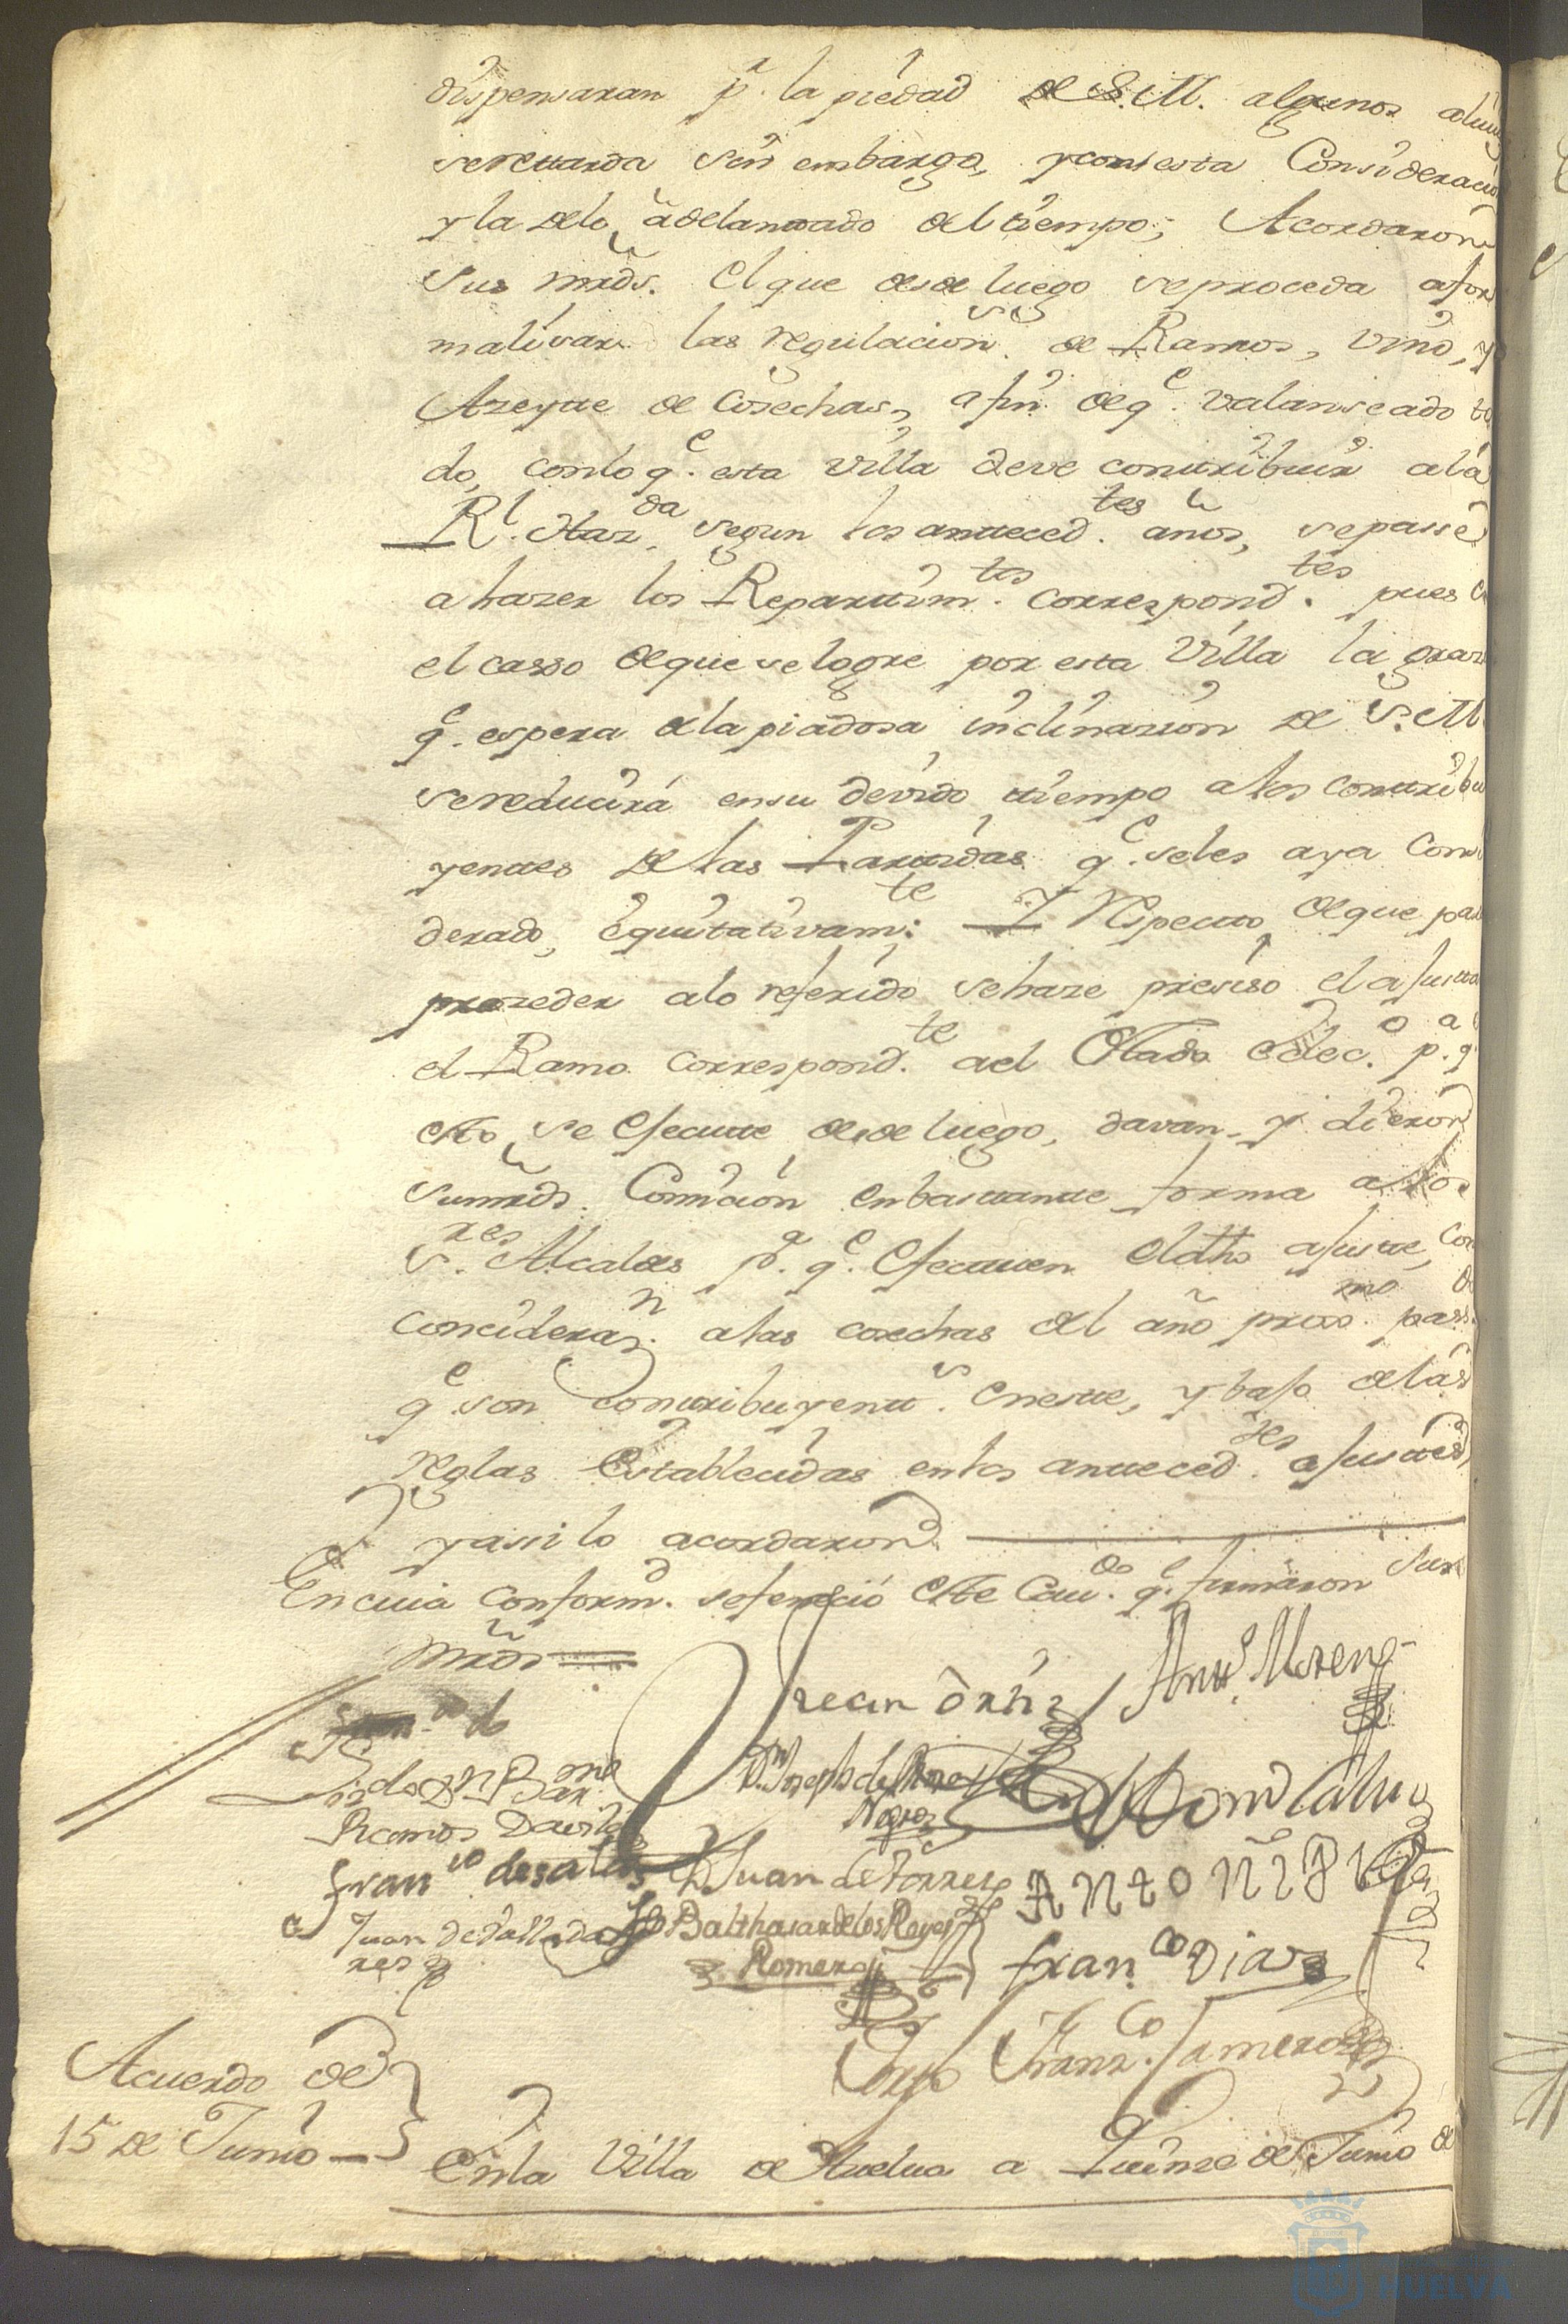 dispensaran pr. la piedad de S.M. algunos
se retarda sin embargo, y con esta Consideracio
y la de lo adelantado del tiempo; Acordaron
Sus mrds. el que desde luego se proceda a for
malisar las regulacions. de Ramos, vino, y
Azeyte de Cosechas, a fin de qe. valanseado to
do, con lo qe. esta villa deve contribuir a la
Rl. Hazda. segun los anteced.tes años, se passe
a hazer los Repartim.tos correspond.tes pues
el casso de que se logre por esta Villa la gra
qe. espera de la piadosa inclinazion de S.M
se reducirá en su devido tiempo a los contribu
yentes de las Partidas qe. se les aya Consi
derado, equitativam.te Y Respecto de que pa
prozeder a lo referido se haze presiso el ajus
el Ramo correspond.te a el Estado Eclec.o p.a q
esto se Efectue desde luego, davan y dieron
sus mrds. Comicion en bastante forma a los
S.res Alcaldes p.a q.e Efectuen el dho ajuste, con
considera.n a las cosechas del año prox.mo pass.
q.e son contribuyent.s en este, y bajo de las
reglas Establecidas en los anteced.tes ajustes,
y assi lo acordaron
En cuia conform.d se feneció este Cav.do q.e firmaron Sus
mrds
Juan Ortiz Antt.o Moreno
Dn. Joseph de
Ramos Davila
Fran.co de Salas Juan de Torres Antonio
Juan de Balthasar de los Reyes
Romero Fran.co Dias
Franz.co
Acuerdo de
15 de Junio
En la Villa de Huelua a Quinze de Junio de
HUELVA